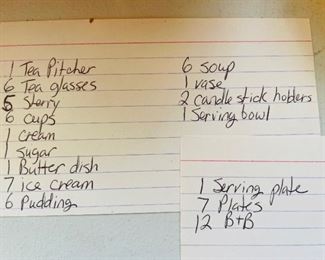 1 Tea Pitcher
6 Tea glasses
5 Sherry
6 cups
1 cream
1 sugar
1 Butter dish
7 ice cream
6 Pudding
6 soup
1 vase
2 candle stick holders
1 Serving bowl
1 Serving plate
7 Plates
12 B+B